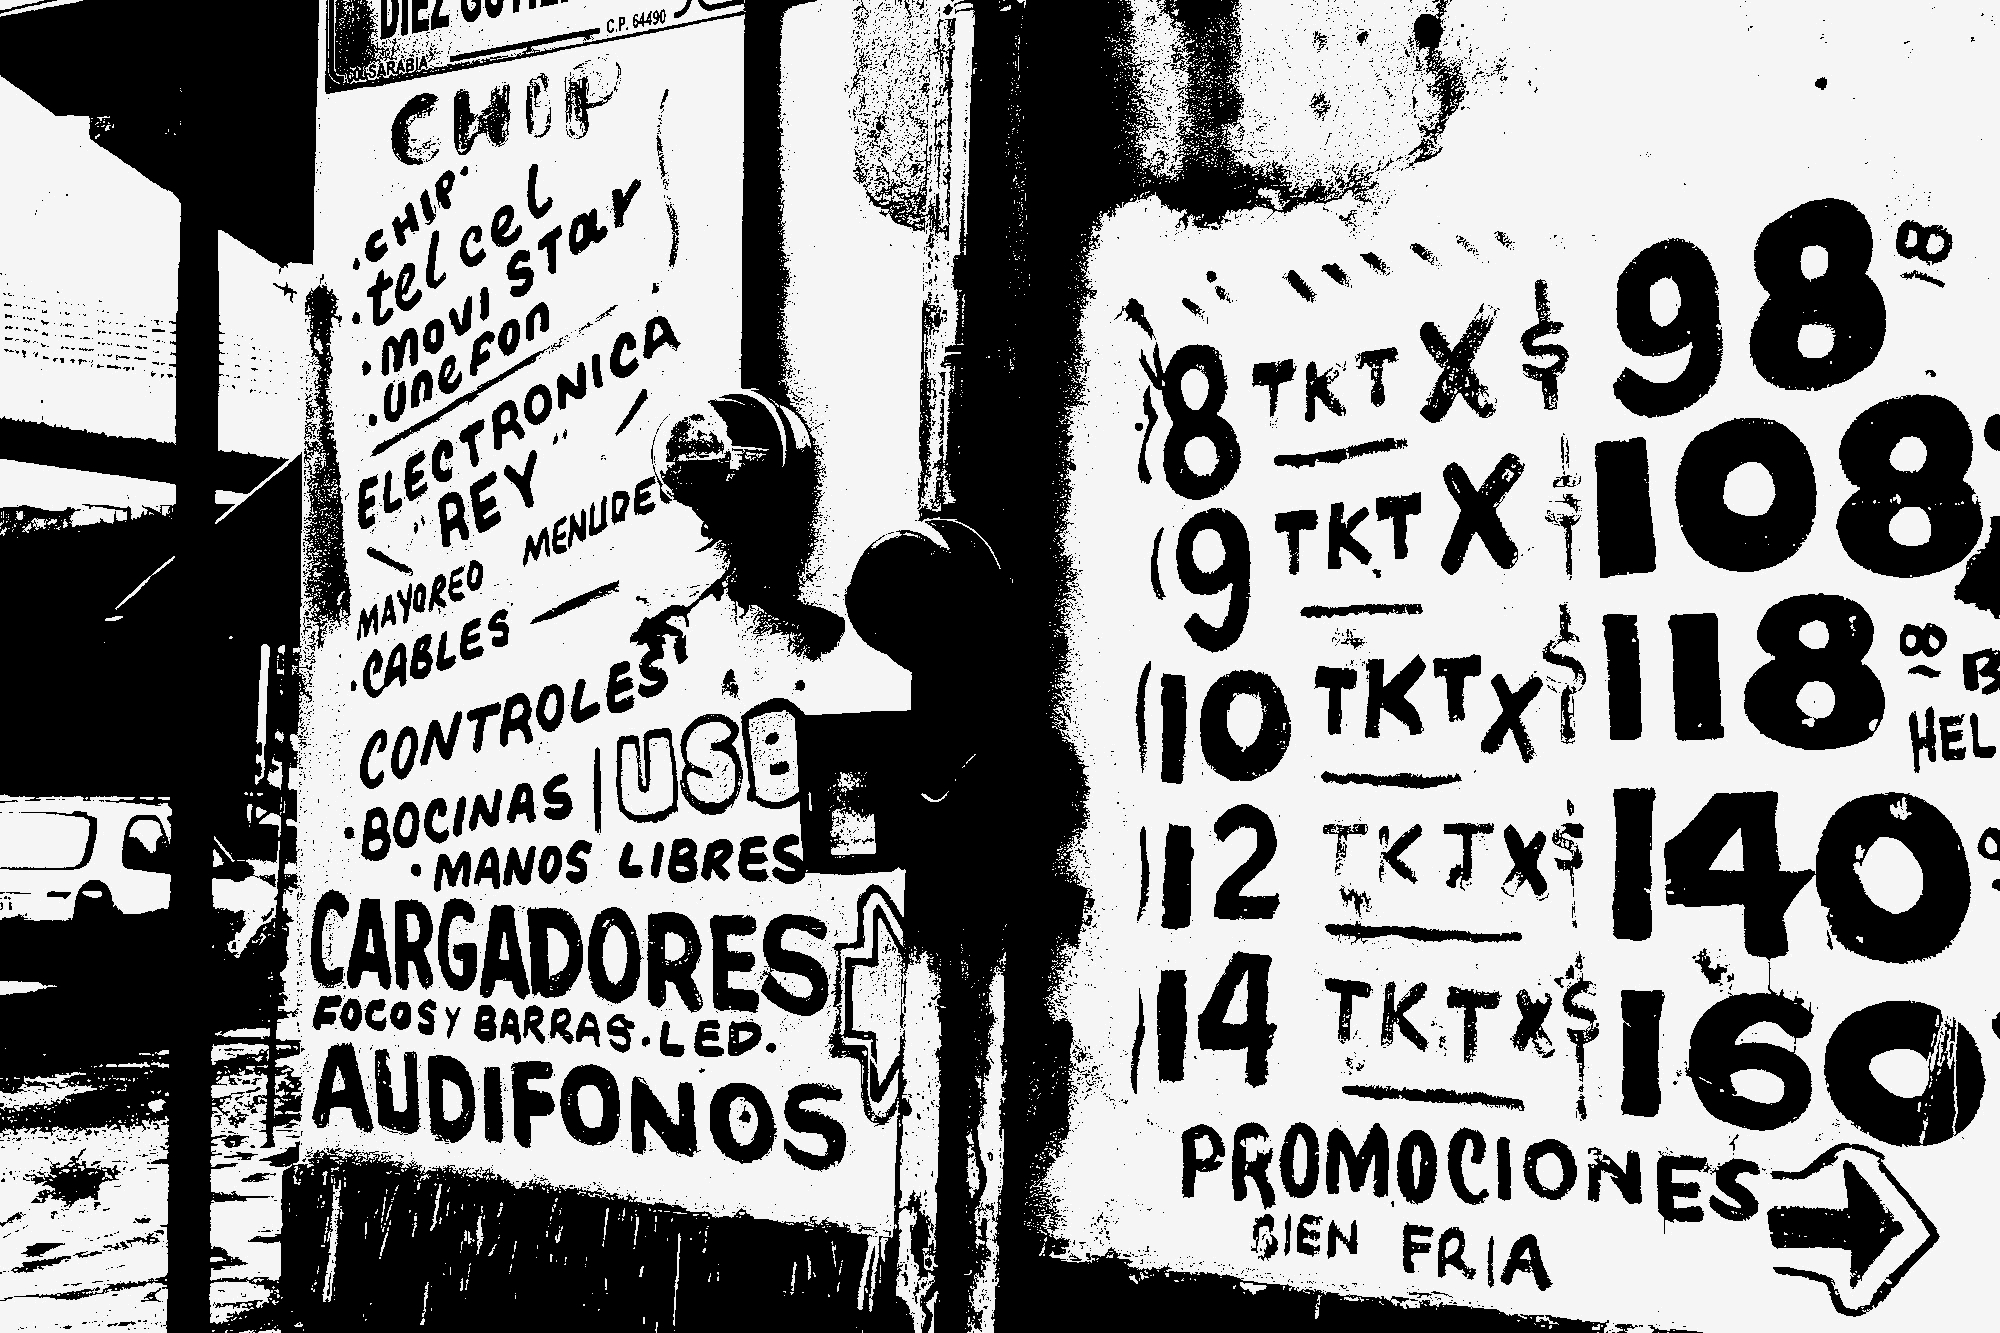 DIEZ
C.P. 64490
COL. SARABIA
CHIP
.CHIP.
.telcel
.movistar
.unefon
ELECTRONICA
"REY"
MAYOREO MENUDEO
.CABLES
CONTROLES
.BOCINAS | USB
.MANOS LIBRES
CARGADORES
FOCOS Y BARRAS.LED.
AUDIFONOS
8 TKT X $ 98 00
9 TKT X $ 108
10 TKT X $ 118 00
HEL
12 TKT X $ 140
14 TKT X $ 160
PROMOCIONES
BIEN FRIA